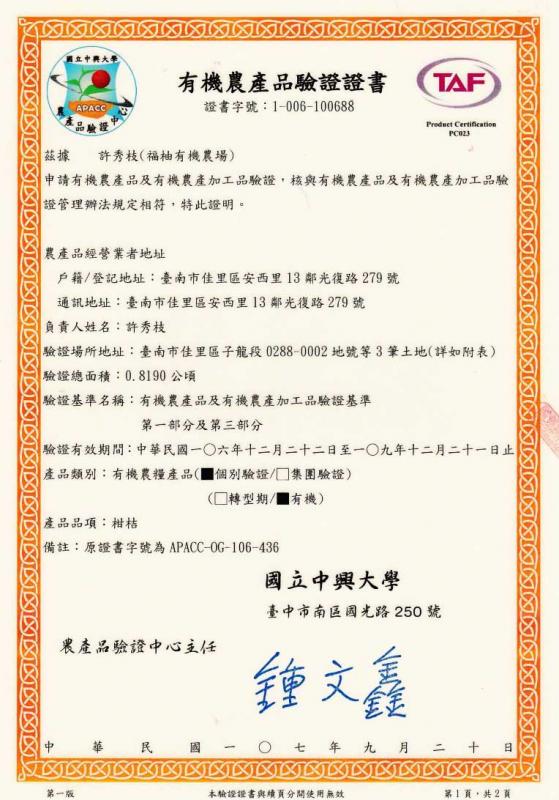 國立中興大學
APACC
農產品驗證中心
TAF
Product Certification
PC023
有機農產品驗證證書
證書字號：1-006-100688
茲據　許秀枝(福柚有機農場)
申請有機農產品及有機農產加工品驗證，核與有機農產品及有機農產加工品驗
證管理辦法規定相符，特此證明。
農產品經營業者地址
戶籍/登記地址：臺南市佳里區安西里13鄰光復路279號
通訊地址：臺南市佳里區安西里13鄰光復路279號
負責人姓名：許秀枝
驗證場所地址：臺南市佳里區子龍段0288-0002地號等3筆土地(詳如附表)
驗證總面積：0.8190公頃
驗證基準名稱：有機農產品及有機農產加工品驗證基準
第一部分及第三部分
驗證有效期間：中華民國一〇六年十二月二十二日至一〇九年十二月二十一日止
產品類別：有機農糧產品(■個別驗證/□集團驗證)
(□轉型期/■有機)
產品品項：柑桔
備註：原證書字號為APACC-OG-106-436
國立中興大學
臺中市南區國光路250號
農產品驗證中心主任
鍾文鑫
中華民國一〇七年九月二十日
第一版
本驗證證書與續頁分開使用無效
第1頁，共2頁